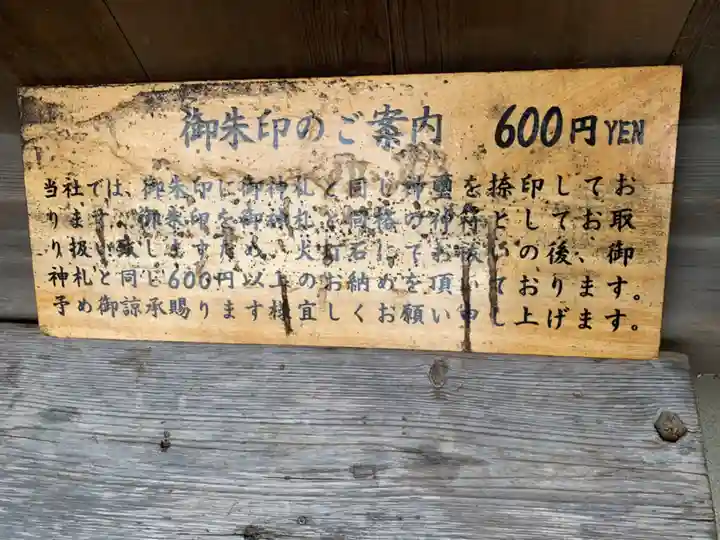 御朱印のご案内 600円 YEN
当社では、御朱印に御神札と同じ神璽を捺印してお
ります。御朱印を御神札と同格の神符としてお取
り扱い致しますため、火打石にてお の後、御
神札と同じ600円以上のお納めを頂いております。
予め御諒承賜ります様宜しくお願い申し上げます。